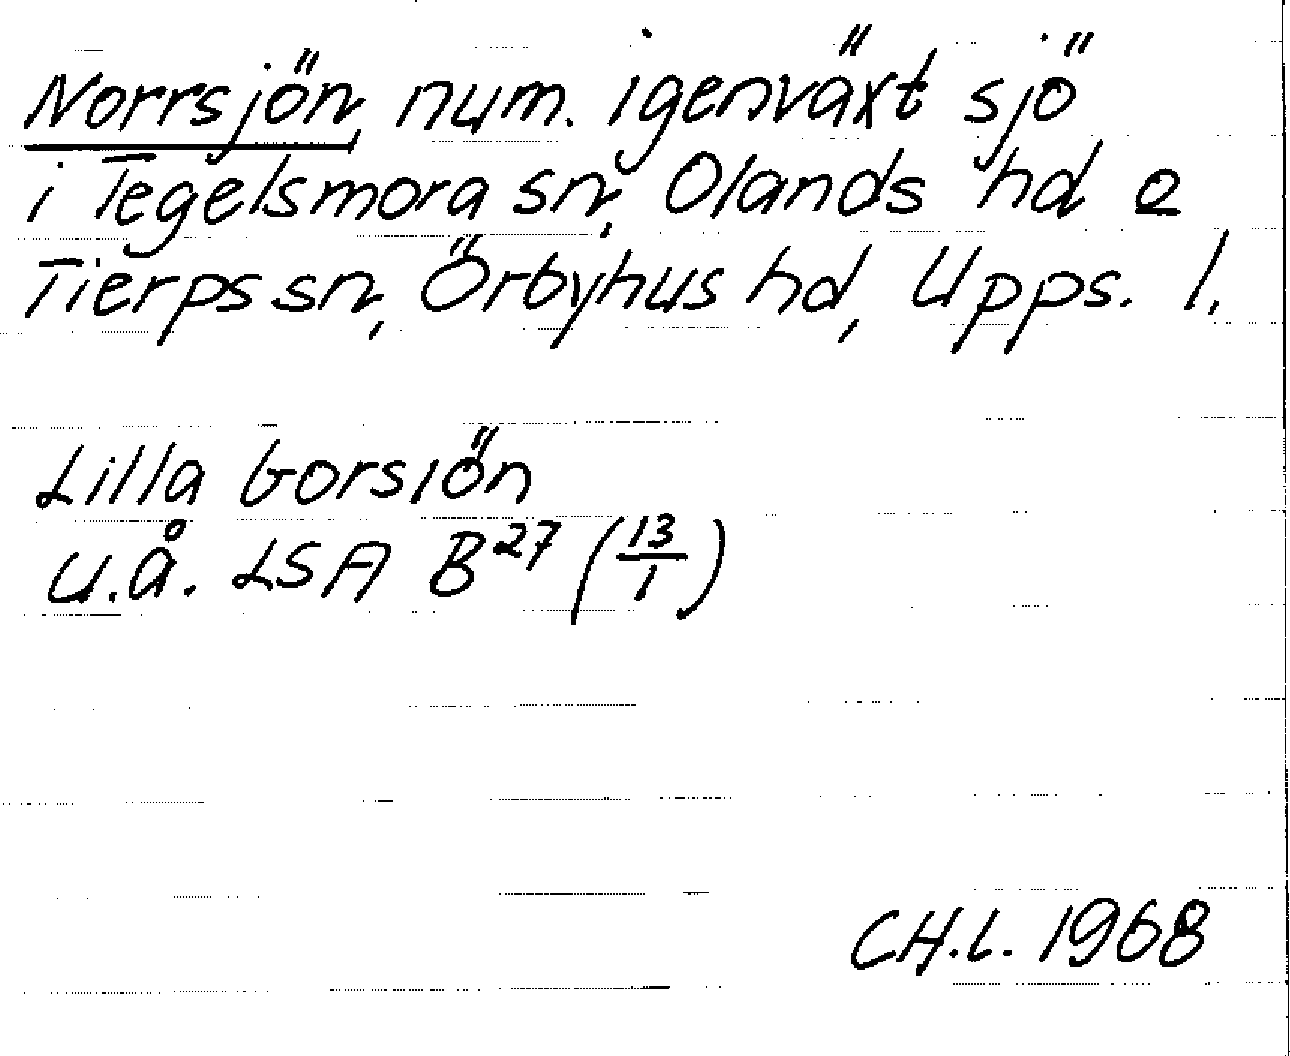 Norrsjön, num. igenväxt sjö
i Tegelsmora sn, Olands hd o
Tierps sn, Örbyhus hd, Upps. l.
Lilla Gorsiön
u.å. LSA B²⁷ (13/1)
CH.L. 1968